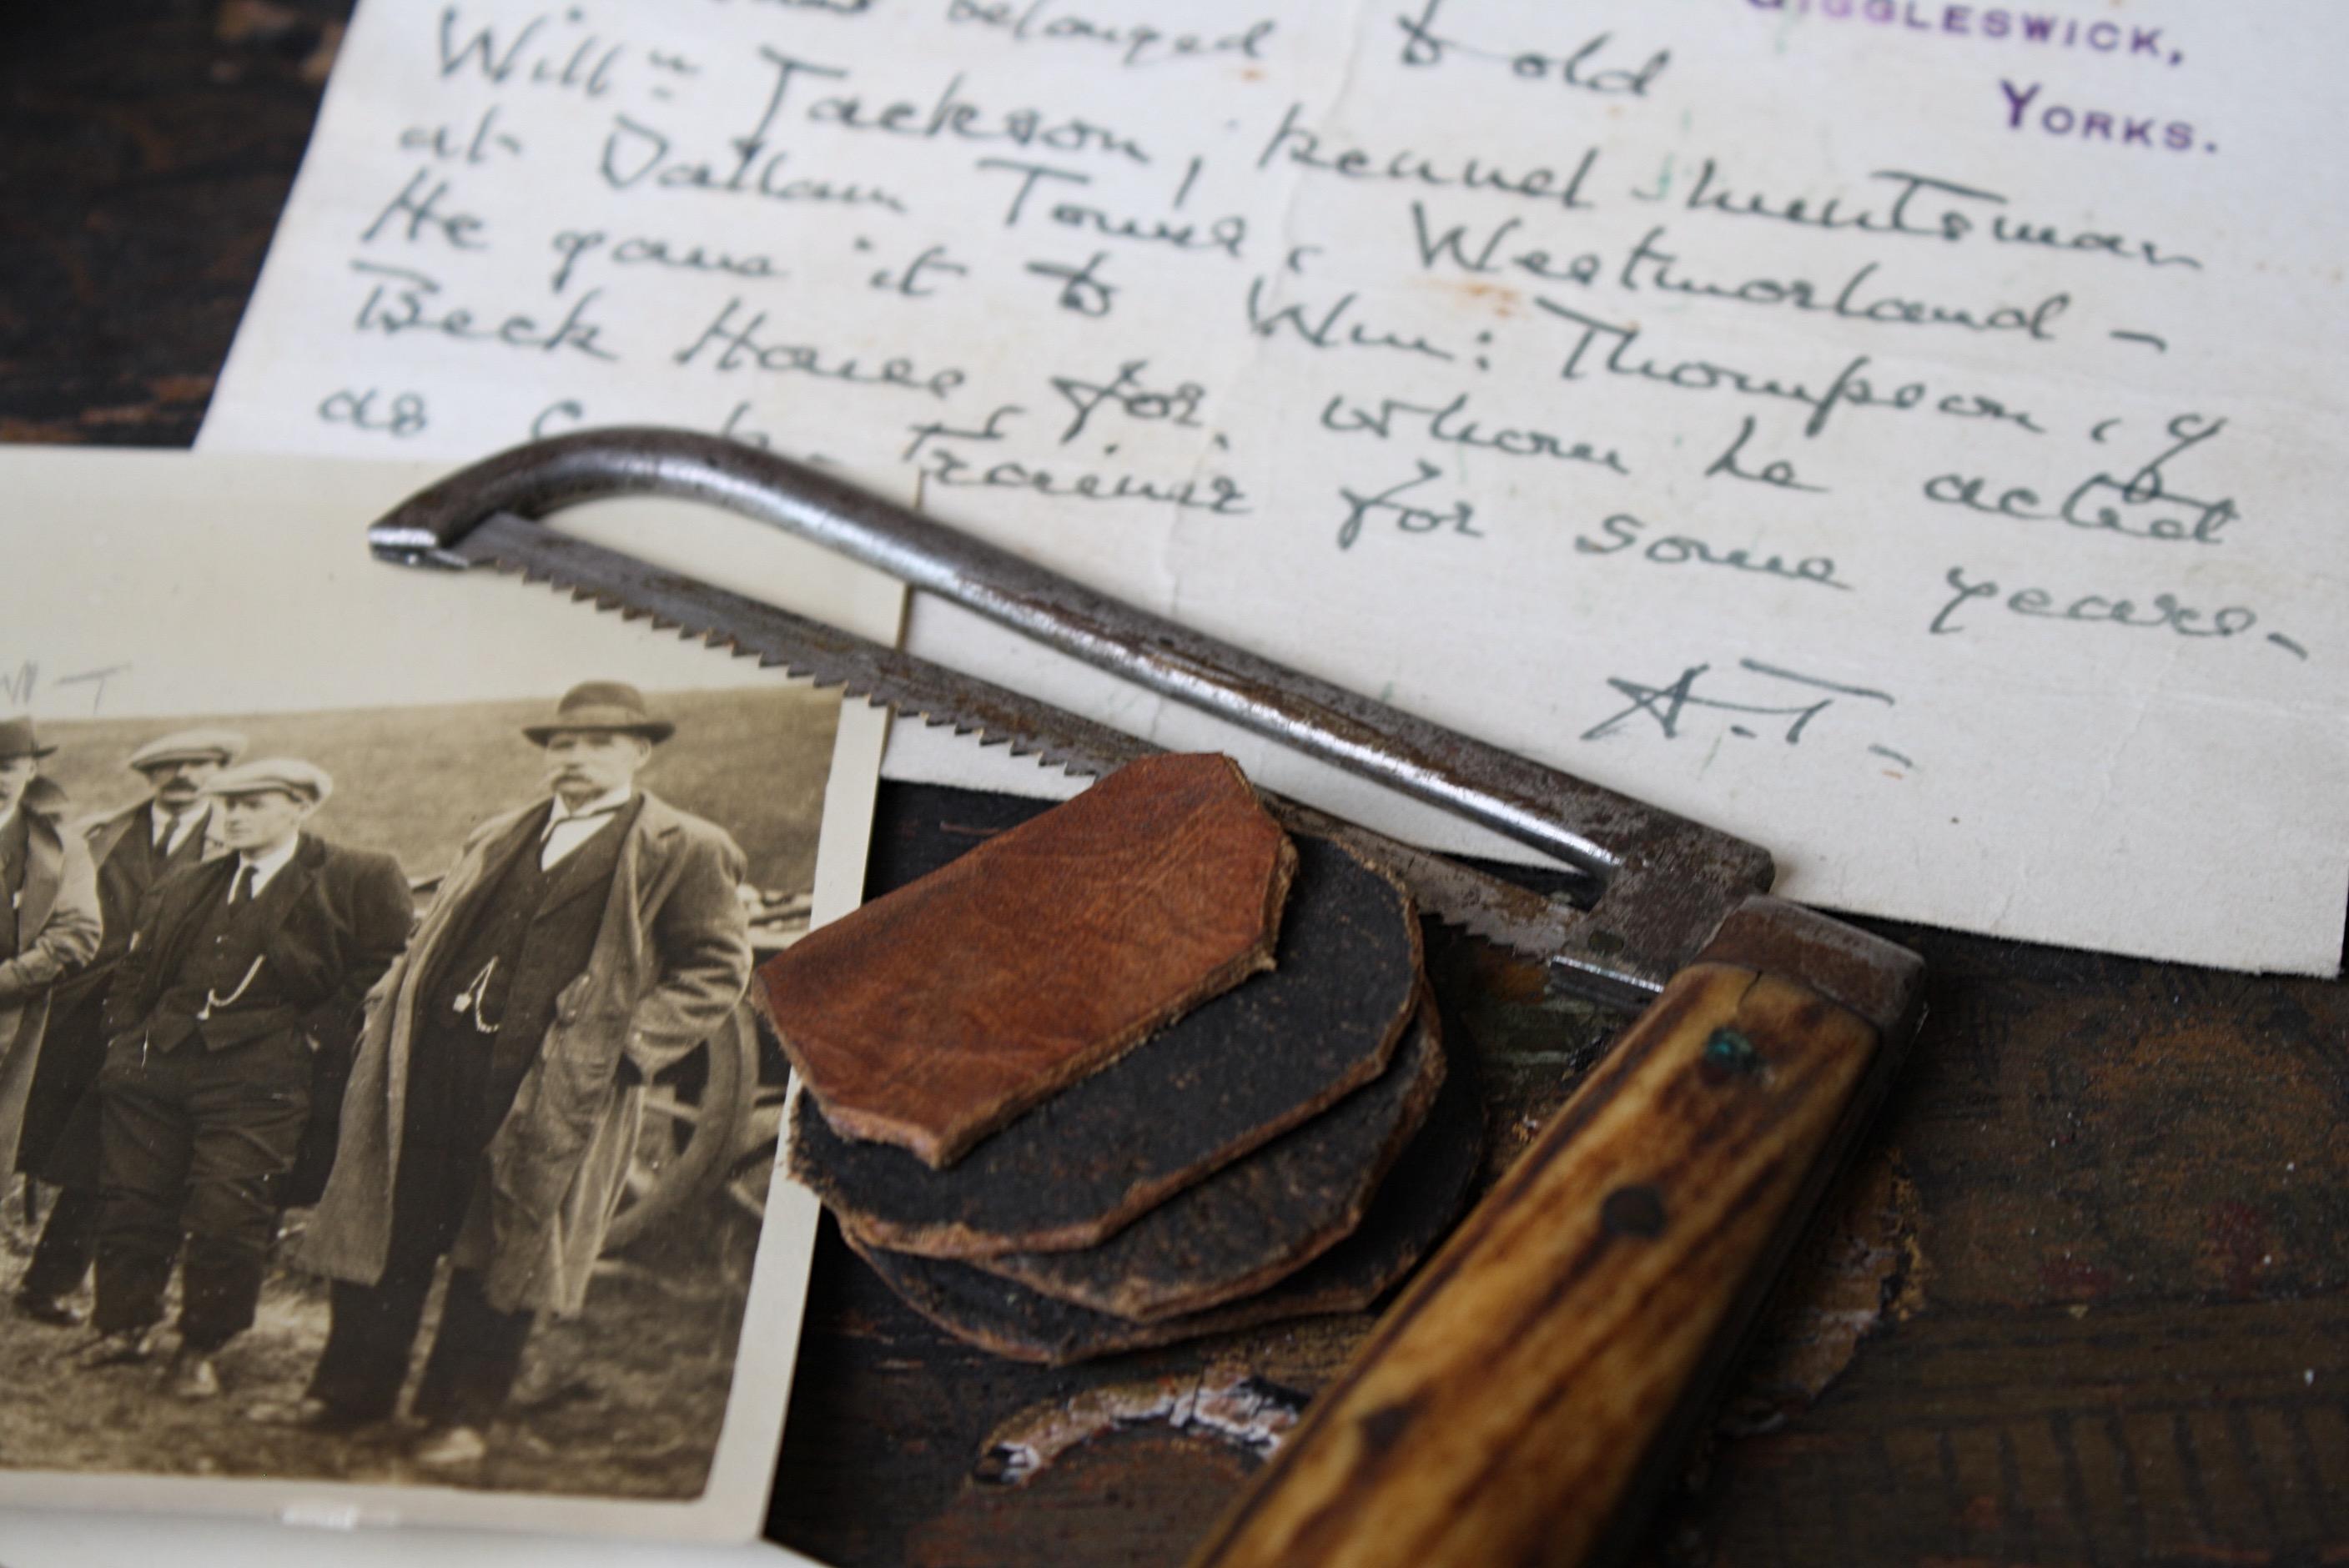 GIGGLESWICK,
YORKS.
belonged to old
Willm Jackson, kennel-huntsman
at Dallam Tower, Westmorland -
He gave it to Wm: Thompson, of
Beck House, for whom he acted
as trainer for some years -
A.T. -
W T